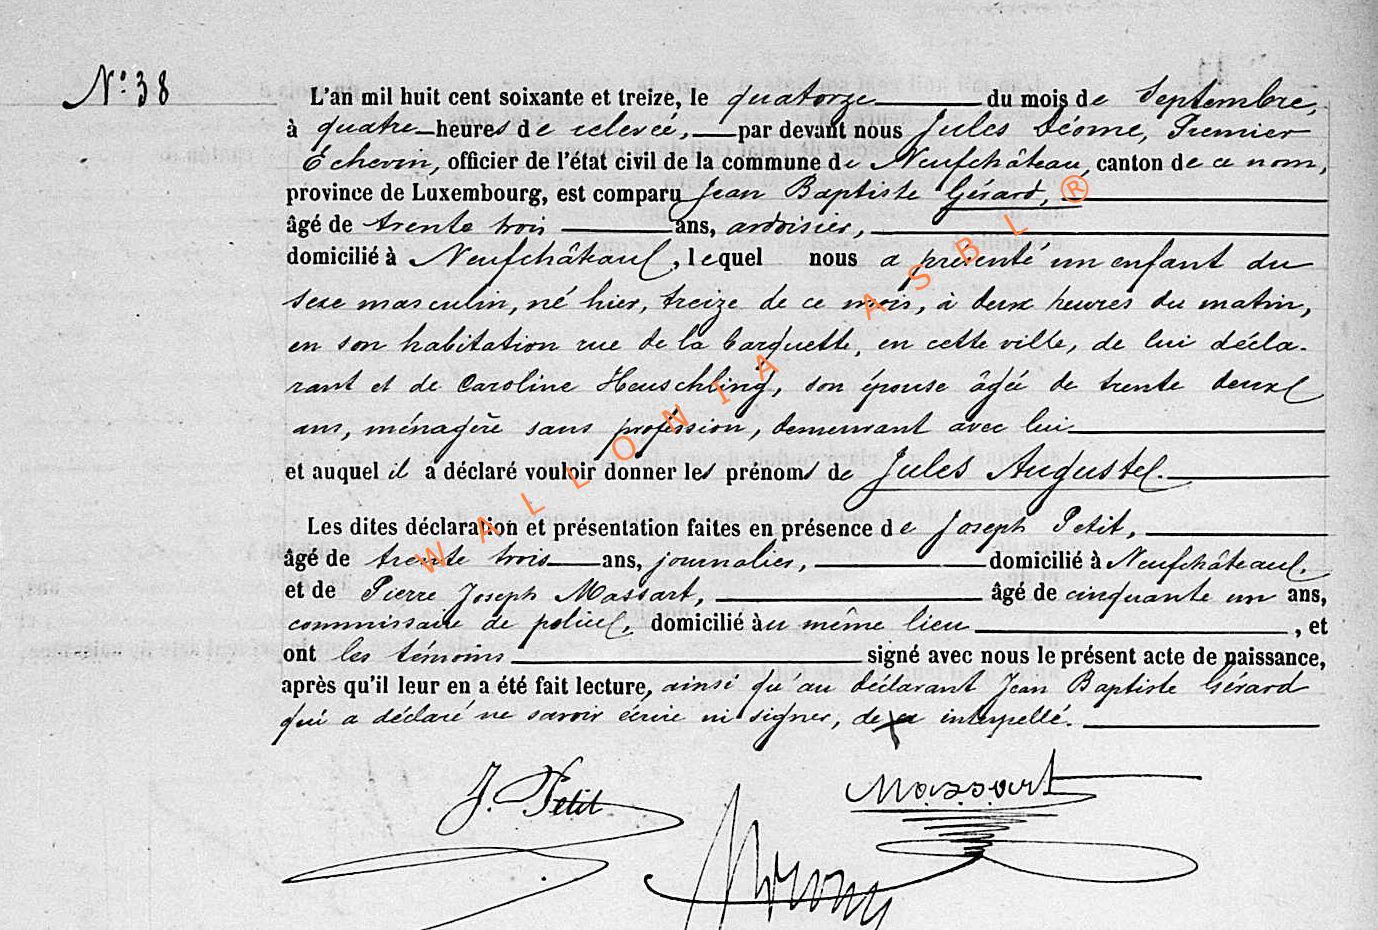 N° 38
L'an mil huit cent soixante et treize, le quatorze du mois de Septembre,
à quatre heures de relevée, par devant nous Jules Déome, Premier
Echevin, officier de l'état civil de la commune de Neufchâteau, canton de ce nom,
province de Luxembourg, est comparu Jean Baptiste Gérard,
âgé de trente trois ans, ardoisier,
domicilié à Neufchâteau, lequel nous a présenté un enfant du
sexe masculin, né hier, treize de ce mois, à deux heures du matin,
en son habitation rue de la barquette, en cette ville, de lui décla-
rant et de Caroline Heuschling, son épouse âgée de trente deux
ans, ménagère sans profession, demeurant avec lui
et auquel il a déclaré vouloir donner les prénoms de Jules Auguste.
Les dites déclaration et présentation faites en présence de Joseph Petit,
âgé de trente trois ans, journalier, domicilié à Neufchâteau,
et de Pierre Joseph Massart, âgé de cinquante un ans,
commissaire de police, domicilié au même lieu, et
ont les témoins signé avec nous le présent acte de naissance,
après qu'il leur en a été fait lecture, ainsi qu'au déclarant Jean Baptiste Gérard
qui a déclaré ne savoir écrire ni signer, de ce interpellé.
J. Petit
Massart
WALLONIA ASBL ®